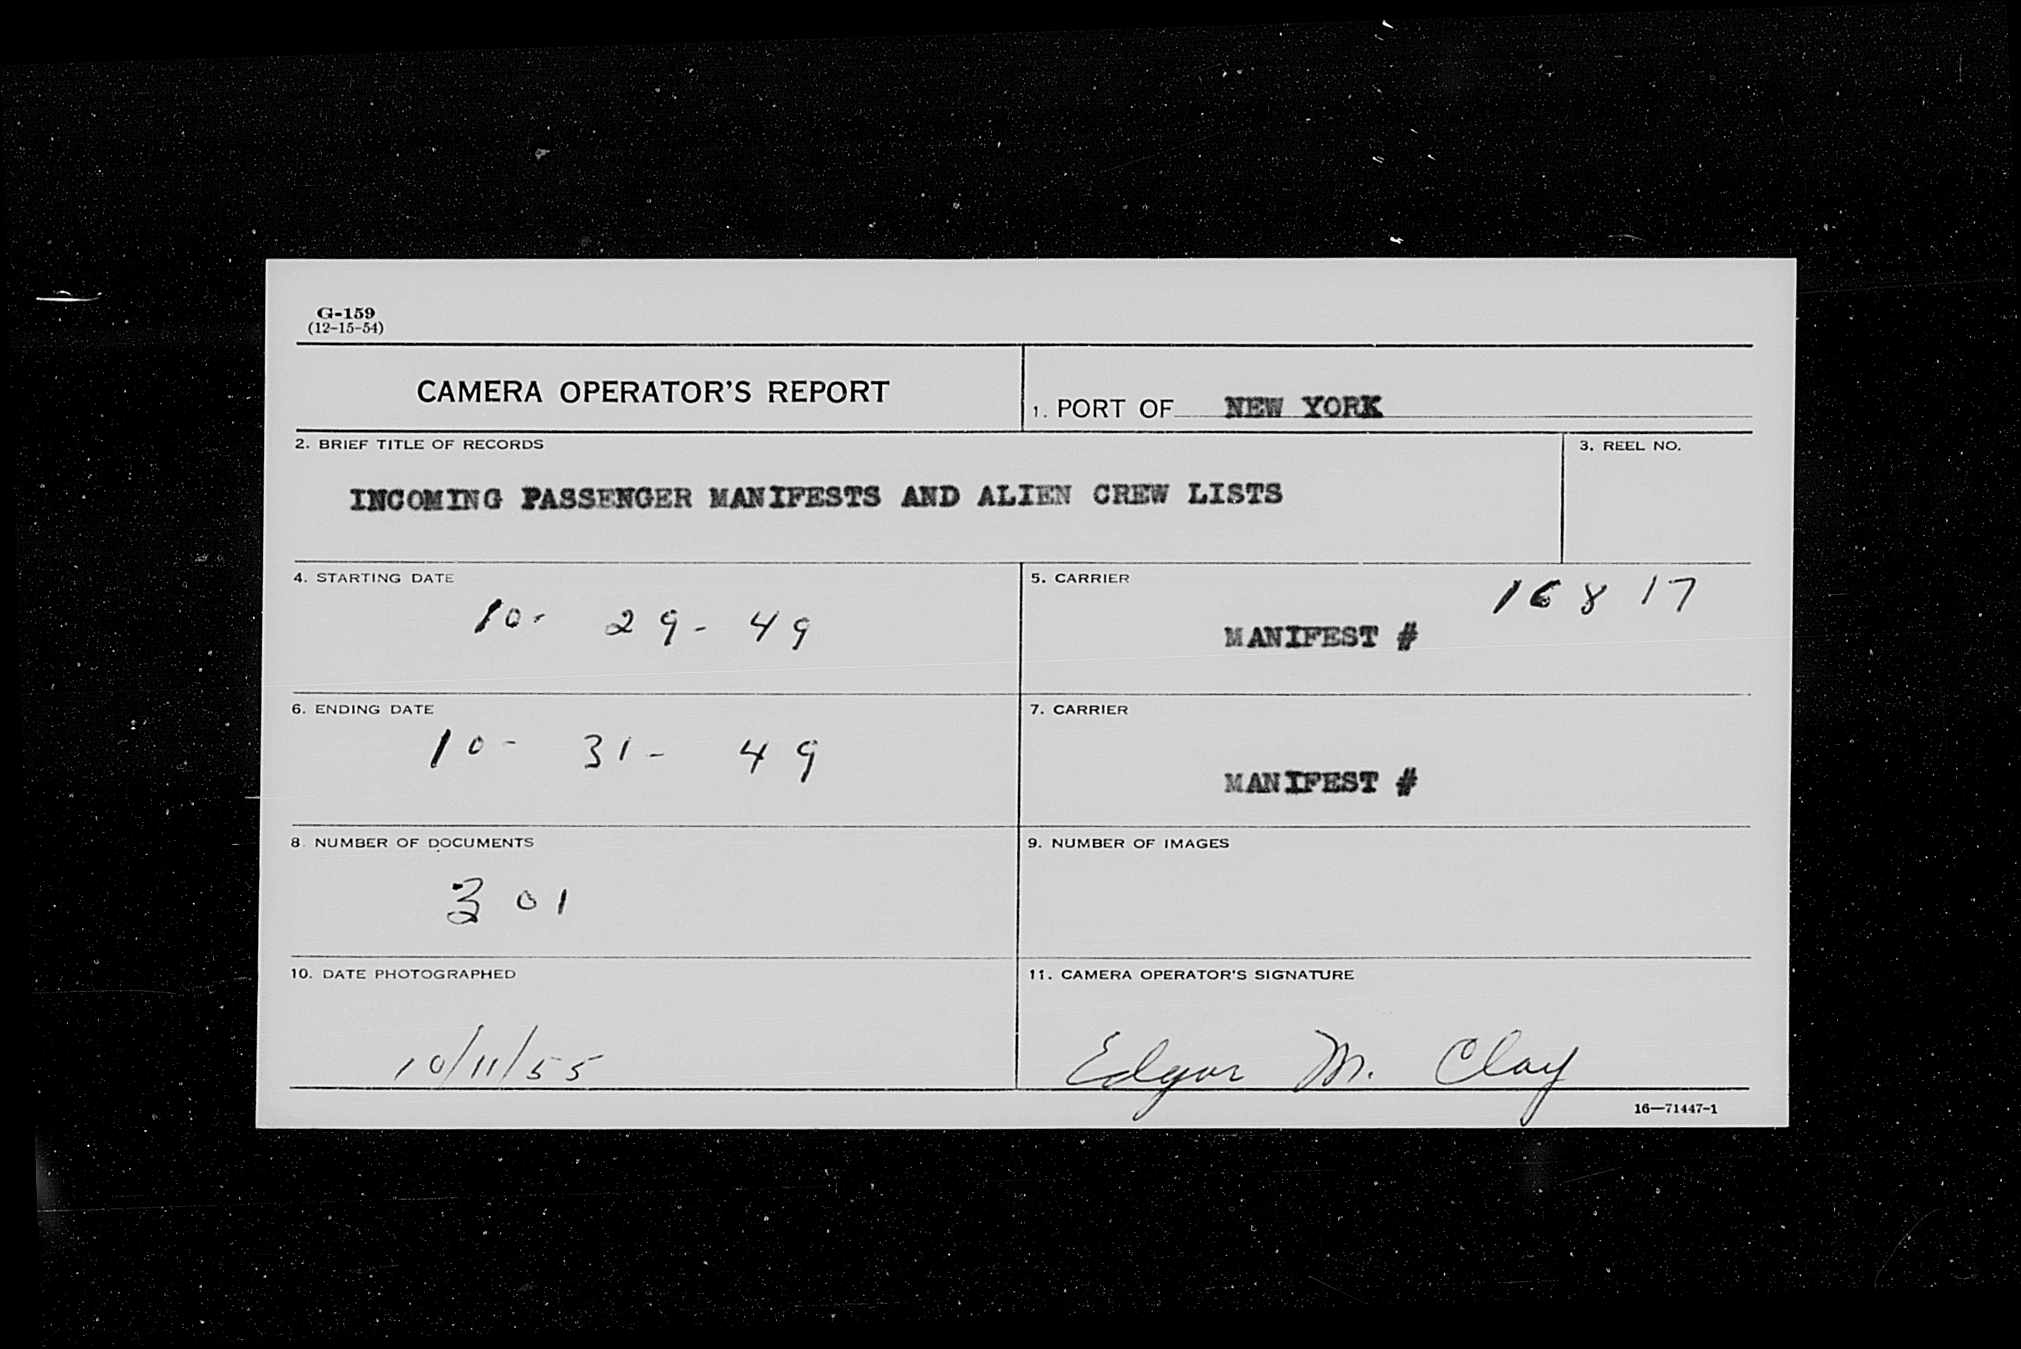 G-159
(12-15-54)
CAMERA OPERATOR'S REPORT
1. PORT OF NEW YORK
2. BRIEF TITLE OF RECORDS
INCOMING PASSENGER MANIFESTS AND ALIEN CREW LISTS
3. REEL NO.
4. STARTING DATE
10- 29- 49
5. CARRIER
16817
MANIFEST #
6. ENDING DATE
10- 31- 49
7. CARRIER
MANIFEST #
8. NUMBER OF DOCUMENTS
301
9. NUMBER OF IMAGES
10. DATE PHOTOGRAPHED
10/11/55
11. CAMERA OPERATOR'S SIGNATURE
Edgar M. Clay
16—71447-1